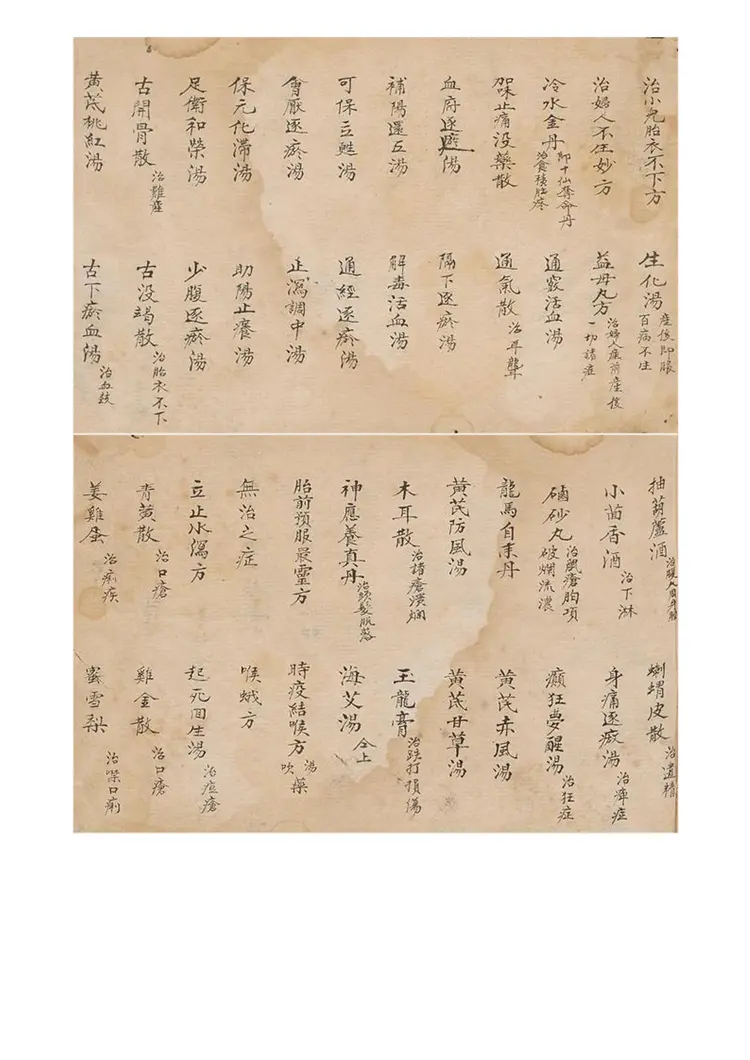 治小兒胎衣不下方
生化湯 產後即服 百病不生
治婦人不任妙方
益母丸方 治婦人產前產後 一切諸症
冷水金丹 即十仙奪命丹 治食積肚疼
通竅活血湯
加味止痛没藥散
通氣散 治耳聾
血府逐瘀湯
膈下逐瘀湯
補陽還五湯
解毒活血湯
可保立甦湯
通經逐瘀湯
會厭逐瘀湯
止瀉調中湯
保元化滯湯
助陽止癢湯
足衛和榮湯
少腹逐瘀湯
古開骨散 治難產
古没竭散 治胎衣不下
黃芪桃紅湯
古下瘀血湯 治血鼓
抽葫蘆酒
刺猬皮散 治遺精
小茴香酒 治下淋
身痛逐瘀湯 治痺症
硇砂丸 治鼠瘡胸項 破爛流濃
癲狂夢醒湯 治狂症
龍馬自來丹
黃芪赤風湯
黃芪防風湯
黃芪甘草湯
木耳散 治諸瘡潰爛
玉龍膏 治跌打損傷
神應養真丹 治頭髮脱落
海艾湯 仝上
胎前預服最靈方
時疫結喉方 湯 吹藥
無治之症
喉蛾方
立止水瀉方
起死回生湯 治痘瘡
青黃散 治口瘡
雞金散 治口瘡
姜雞蛋 治痢疾
蜜雪梨 治噤口痢